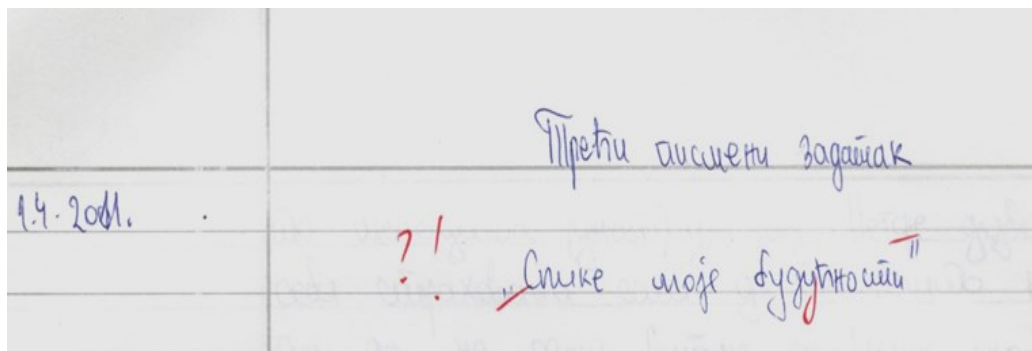 Трећи писмени задатак
1.4. 2011.
?! „Слике моје будућности"